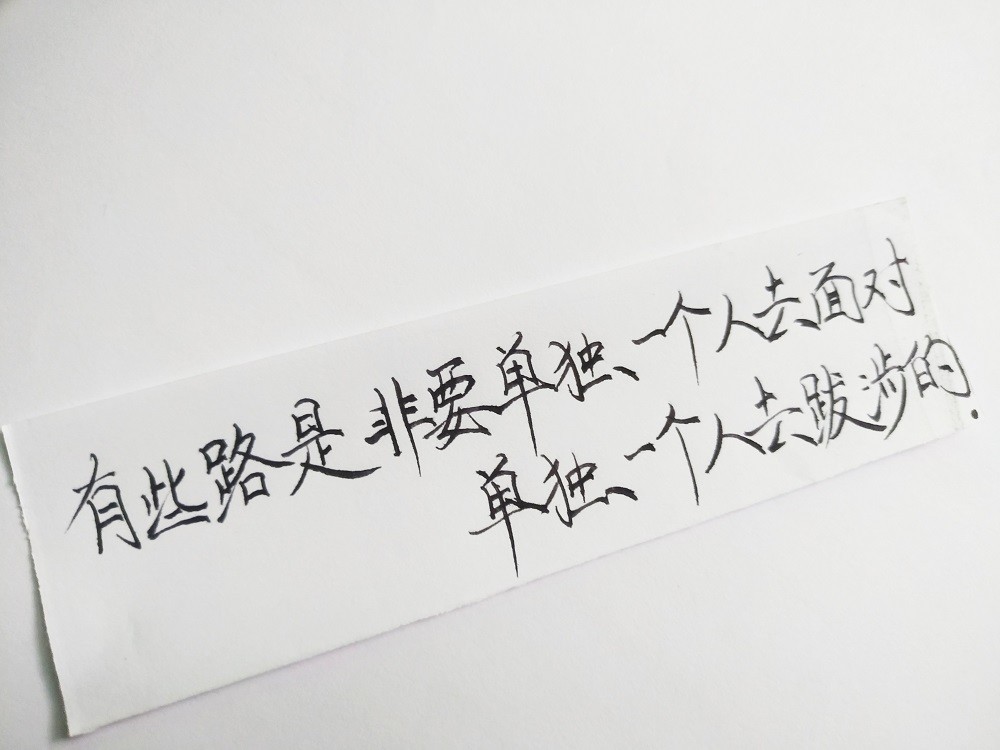 有些路是非要单独一个人去面对
单独一个人去跋涉的.